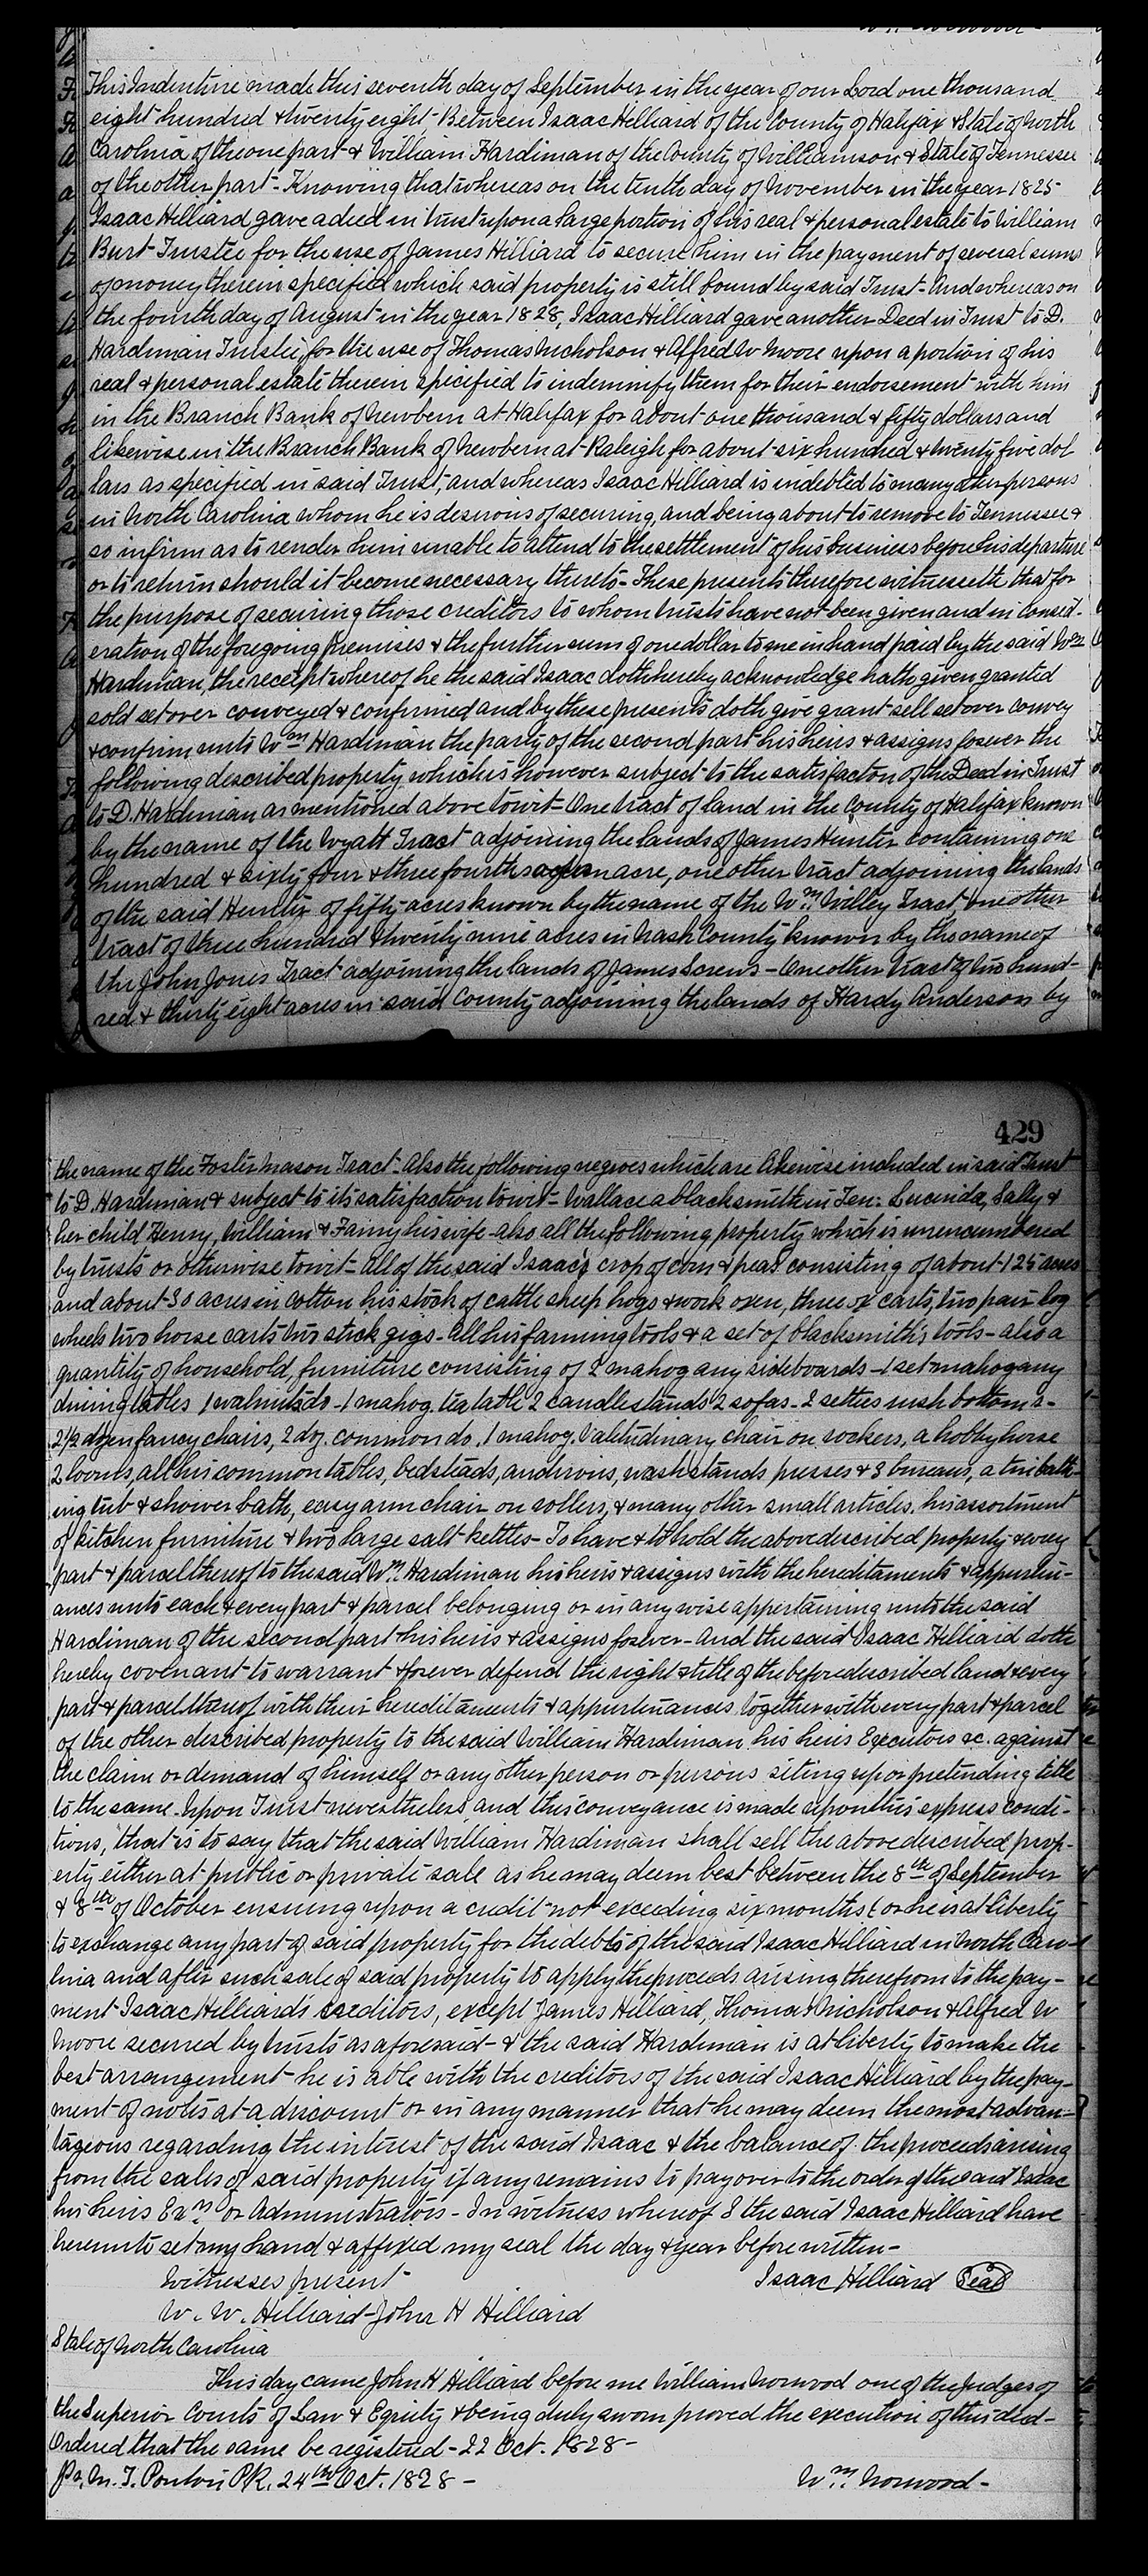 This Indenture made this seventh day of September in the year of our Lord one thousand
eight hundred & twenty eight, Between Isaac Hilliard of the County of Halifax & State of North
Carolina of the one part & William Hardiman of the County of Williamson & State of Tennessee
of the other part - Knowing that whereas on the tenth day of November in the year 1825
Isaac Hilliard gave a deed in trust upon a large portion of his real & personal estate to William
Burt Trustee for the use of James Hilliard to secure him in the payment of several sums
of money therein specified which said property is still bound by said Trust - And whereas on
the fourth day of August in the year 1828, Isaac Hilliard gave another Deed in Trust to D.
Hardiman Trustee, for the use of Thomas Nicholson & Alfred W Moore upon a portion of his
real & personal estate therein specified to indemnify them for their endorsement with him
in the Branch Bank of Newbern at Halifax for about one thousand & fifty dollars and
likewise in the Branch Bank of Newbern at Raleigh for about six hundred & twenty five dol
lars as specified in said Trust, and whereas Isaac Hilliard is indebted to many other persons
in North Carolina whom he is desirous of securing, and being about to remove to Tennessee &
so infirm as to render him unable to attend to the settlement of his business before his departure
or to return should it become necessary thereto - These presents therefore witnesseth that for
the purpose of securing those creditors to whom trusts have not been given and in consid-
eration of the foregoing premises & the further sum of one dollar to me in hand paid by the said Wm
Hardiman, the receipt whereof he the said Isaac doth hereby acknowledge hath given granted
sold set over conveyed & confirmed and by these presents doth give grant sell set over convey
& confirm unto Wm Hardiman the party of the second part his heirs & assigns forever the
following described property which is however subject to the satisfaction of the Deed in Trust
to D. Hardiman as mentioned above towit - One tract of land in the County of Halifax known
by the name of the Wyatt Tract adjoining the lands of James Hunter containing one
hundred & sixty four & three fourths acre, one other tract adjoining the lands
of the said Hunter of fifty acres known by the name of the Wm Willey Tract, One other
tract of three hundred & twenty nine acres in Nash County known by the name of
the John Jones Tract adjoining the lands of James Screws - One other tract of two hund-
red & thirty eight acres in said County adjoining the lands of Hardy Anderson by
429
the name of the Foster Mason Tract - Also the following negroes which are likewise included in said Trust
to D. Hardiman & subject to its satisfaction towit - Wallace a blacksmith in Ten: Lucinda, Sally &
her child Henry, William & Fanny his wife - also all the following property which is unencumbered
by trusts or otherwise towit - All of the said Isaac's crop of corn & peas consisting of about 125 acres
and about 30 acres in cotton his stock of cattle sheep hogs & work oxen, three ox carts, two pair log
wheels two horse carts two stick gigs - All his farming tools & a set of blacksmith's tools - also a
quantity of household, furniture consisting of 2 mahogany sideboards - 1 set mahogany
dining tables 1 walnut do - 1 mahog. tea table 2 candlestands 2 sofas - 2 settees rush bottoms -
2 1/2 dozen fancy chairs, 2 doz. common do. 1 mahog. Valetudinary chair on rockers, a hobby horse
2 looms, all his common tables, bedsteads, andirons, washstands presses & 3 bureaus, a tin bath-
ing tub & shower bath, easy arm chair on rollers, & many other small articles. his assortment
of kitchen furniture & two large salt kettles - To have & to hold the above described property & every
part & parcel thereof to the said Wm Hardiman his heirs & assigns with the hereditaments & appurten-
ances unto each & every part & parcel belonging or in any wise appertaining unto the said
Hardiman of the second part his heirs & assigns forever - And the said Isaac Hilliard doth
hereby covenant to warrant & forever defend the right & title of the before described land & every
part & parcel thereof with their hereditaments & appurtenances together with every part & parcel
of the other described property to the said William Hardiman his heirs Executors &c. against
the claim or demand of himself or any other person or persons siting up or pretending title
to the same. Upon Trust nevertheless and this conveyance is made upon this express condi-
tions, that is to say that the said William Hardiman shall sell the above described prop-
erty either at public or private sale as he may deem best between the 8th of September
& 8th of October ensuing upon a credit not exceeding six months (or he is at liberty
to exchange any part of said property for the debts of the said Isaac Hilliard in North Caro-
lina and after such sale of said property to apply the proceeds arising therefrom to the pay-
ment Isaac Hilliard's creditors, except James Hilliard, Thomas Nicholson & Alfred W
Moore secured by trusts as aforesaid - & the said Hardiman is at liberty to make the
best arrangement he is able with the creditors of the said Isaac Hilliard by the pay-
ment of notes at a discount or in any manner that he may deem the most advan-
tageous regarding the interest of the said Isaac & the balance of the proceeds arising
from the sales of said property if any remains to pay over to the order of the said Isaac
his heirs Exrs or Administrators - In witness whereof I the said Isaac Hilliard have
hereunto set my hand & affixed my seal the day & year before written -
Witnesses present Isaac Hilliard Seal
W. W. Hilliard - John H Hilliard
State of North Carolina
This day came John H Hilliard before me William Norwood one of the Judges of
the Superior Courts of Law & Equity & being duly sworn proved the execution of this deed -
Ordered that the same be registered - 22 Oct. 1828 -
Pr. M. T. Ponton PR. 24th Oct. 1828 - Wm Norwood -